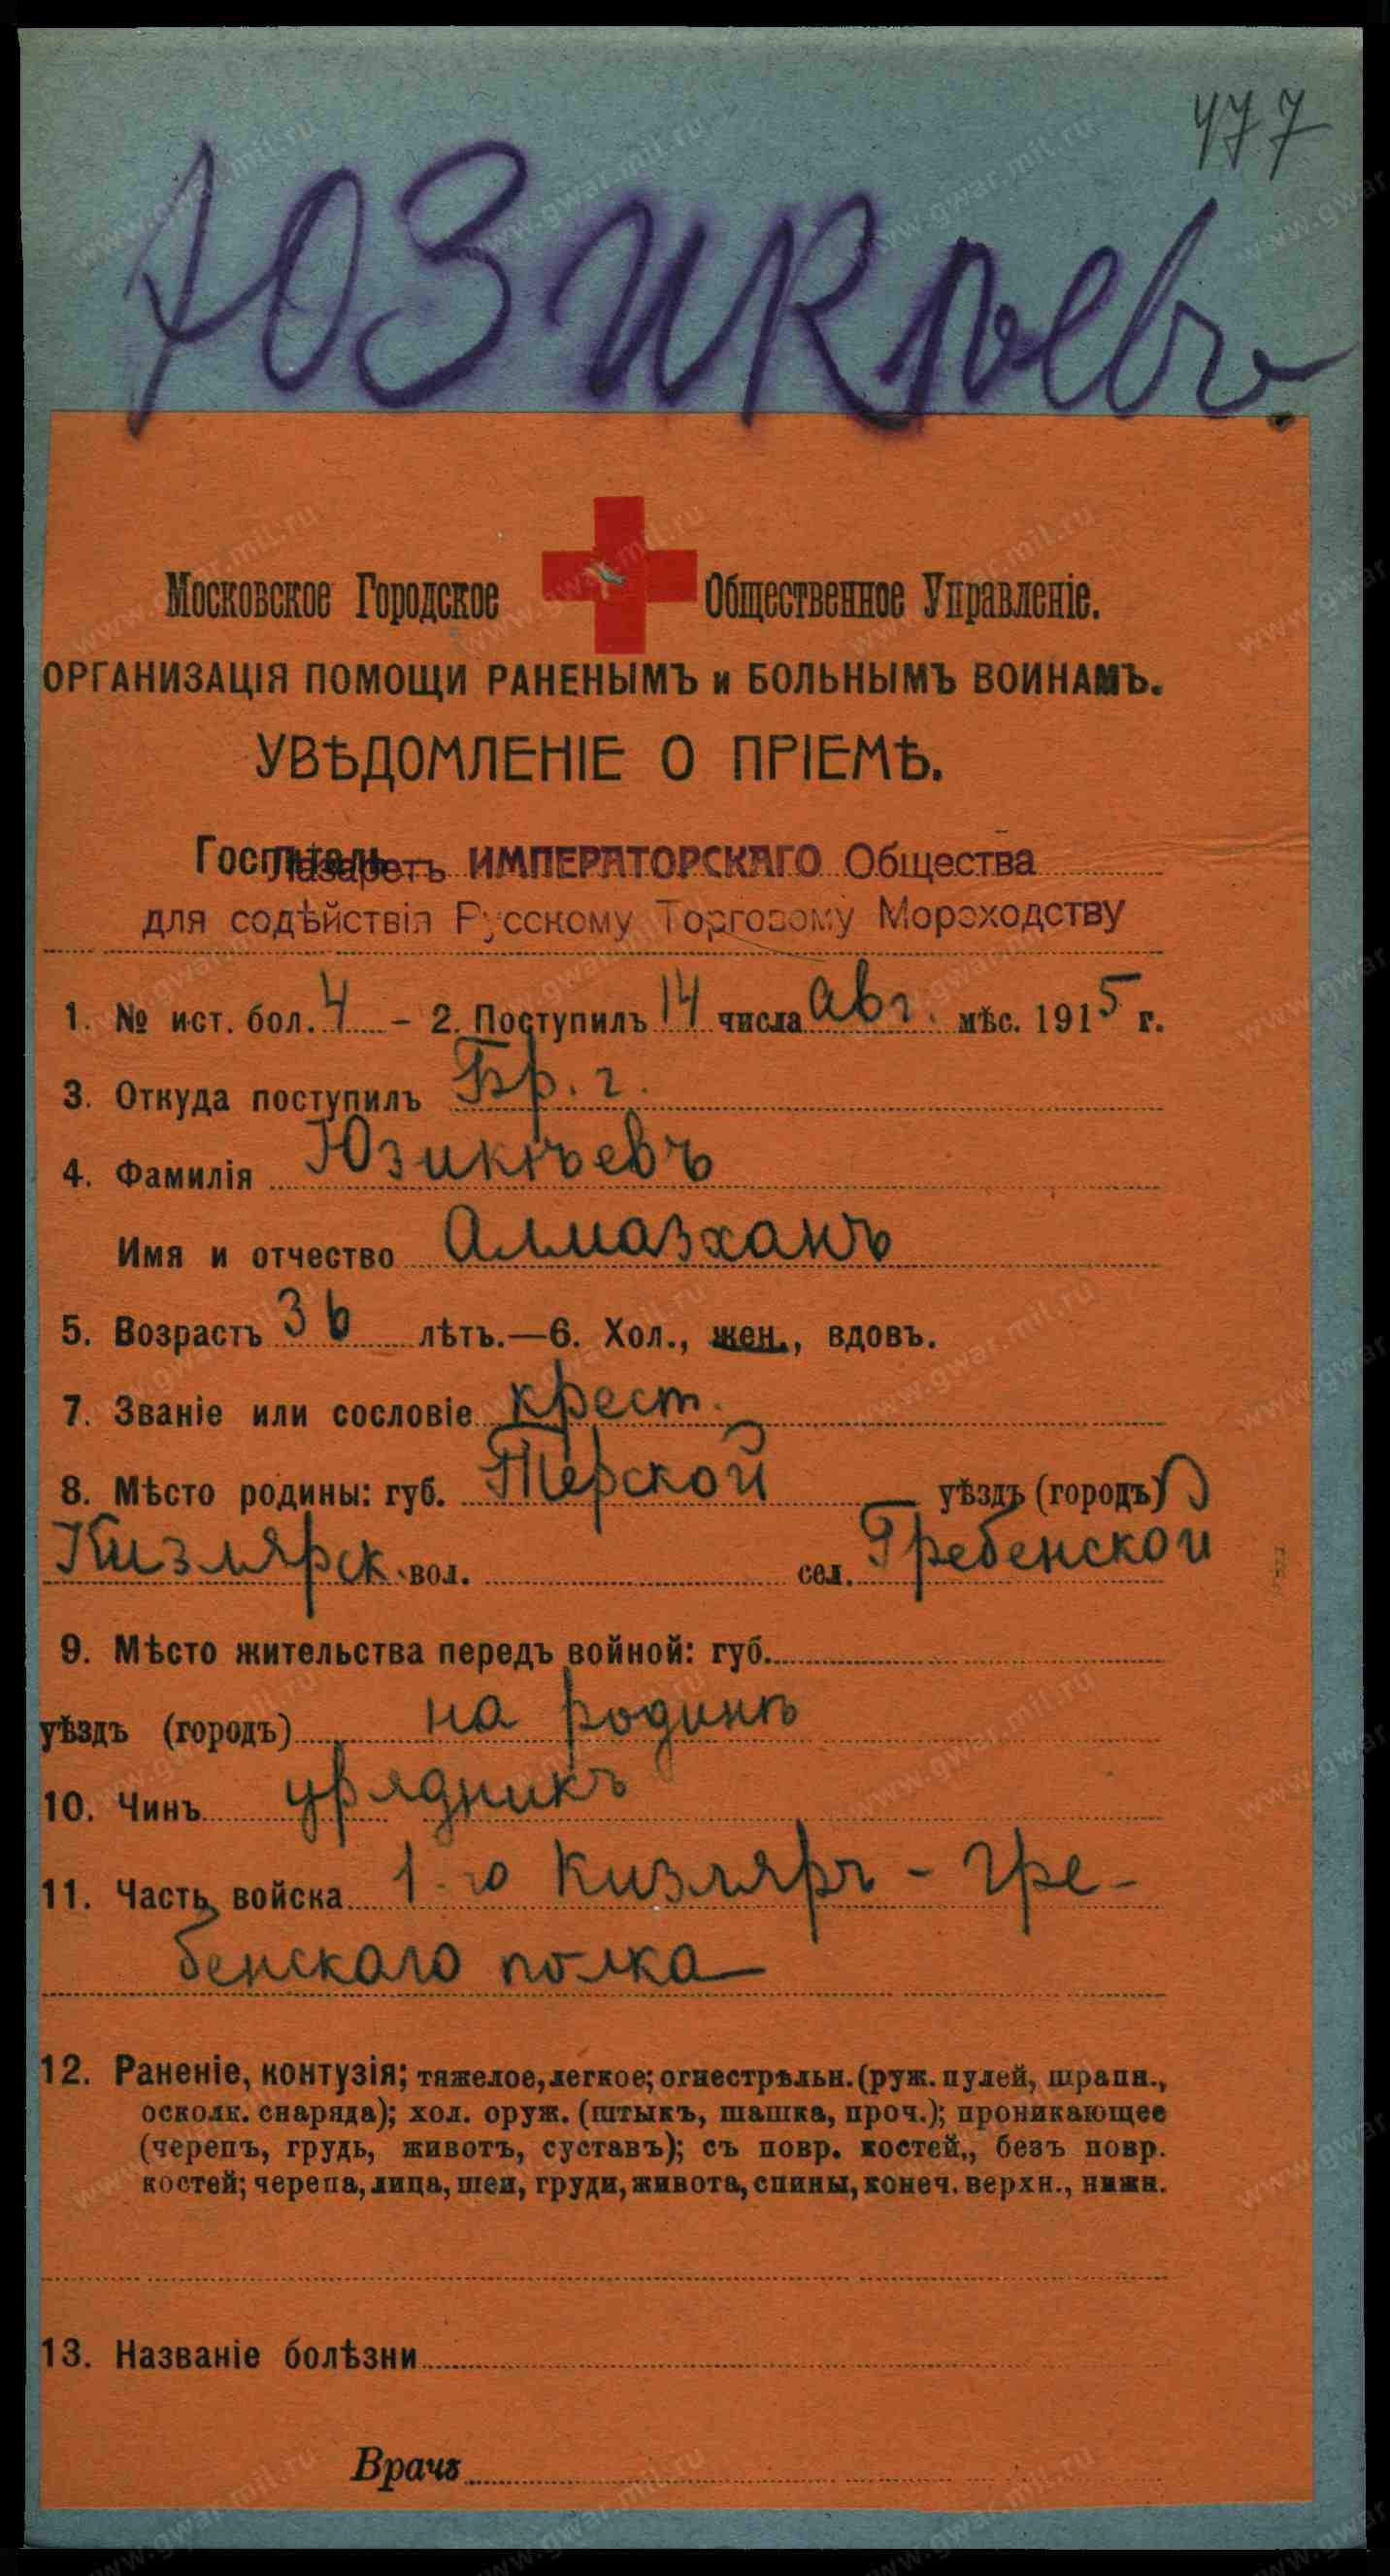 477
Юзикѣевъ
Московское Городское Общественное Управленіе.
ОРГАНИЗАЦІЯ ПОМОЩИ РАНЕНЫМЪ и БОЛЬНЫМЪ ВОИНАМЪ.
УВѢДОМЛЕНІЕ О ПРІЕМѢ.
Госпиталь Лазаретъ ИМПЕРАТОРСКАГО Общества
для содѣйствія Русскому Торговому Мореходству
1. № ист. бол. 4 – 2. Поступилъ 14 числа авг. мѣс. 1915 г.
3. Откуда поступилъ Бр. г.
4. Фамилія Юзикѣевъ
Имя и отчество Алмазханъ
5. Возрастъ 36 лѣтъ.—6. Хол., жен., вдовъ.
7. Званіе или сословіе крест.
8. Мѣсто родины: губ. Терской уѣздъ (городъ)
Кизлярск. вол. сел. Гребенской
9. Мѣсто жительства передъ войной: губ.
уѣздъ (городъ) на родинѣ
10. Чинъ урядникъ
11. Часть войска 1-го Кизляръ-Гре-
бенскаго полка
12. Раненіе, контузія; тяжелое, легкое; огнестрѣльн. (руж. пулей, шрапн.,
осколк. снаряда); хол. оруж. (штыкъ, шашка, проч.); проникающее
(черепъ, грудь, животъ, суставъ); съ повр. костей,, безъ повр.
костей; черепа, лица, шеи, груди, живота, спины, конеч. верхн., нижн.
13. Названіе болѣзни
Врачъ
www.gwar.mil.ru